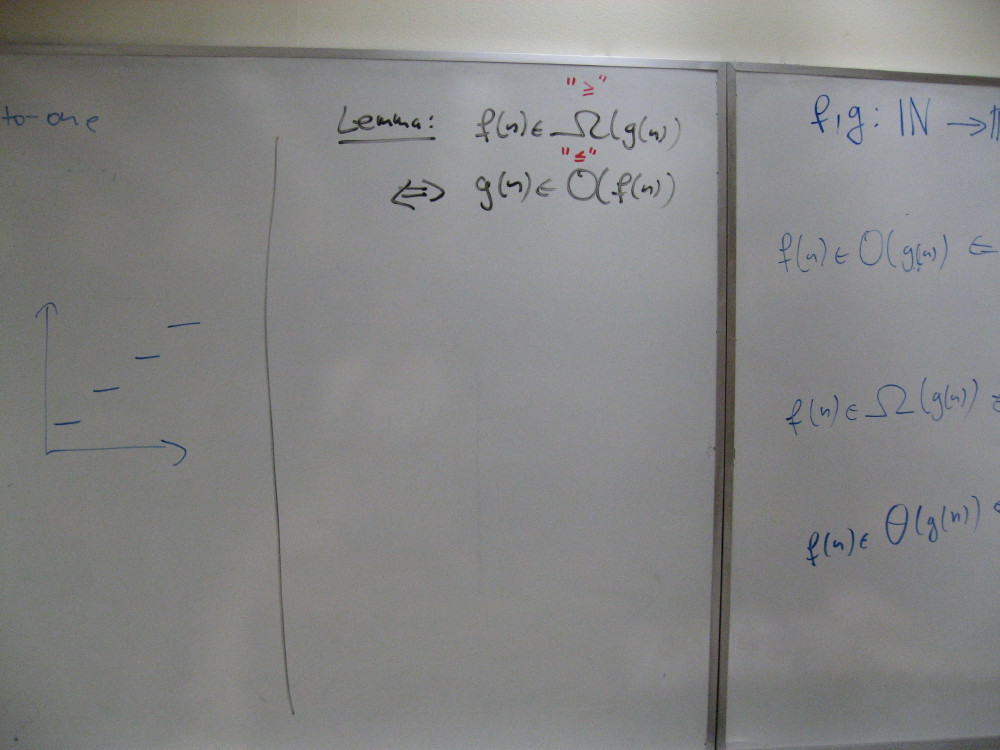 to-one
Lemma: f(n) ∈ Ω(g(n))
"≥"
⇔ g(n) ∈ O(f(n))
"≤"
f,g: ℕ →
f(n) ∈ O(g(n))
f(n) ∈ Ω(g(n))
f(n) ∈ Θ(g(n))